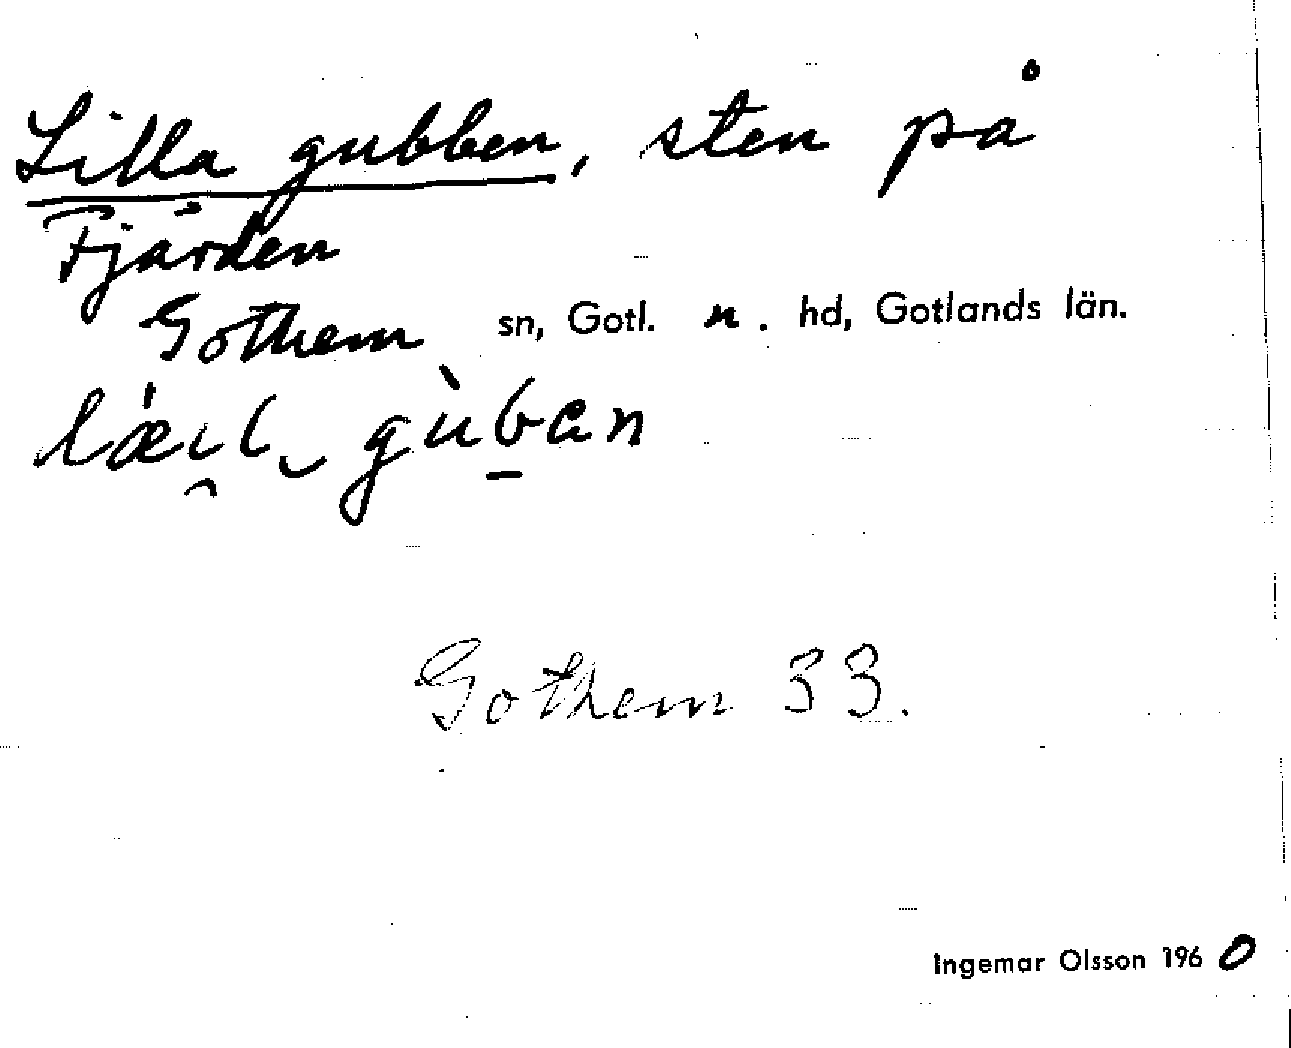 Lilla gubben, sten på
Fjärden
Gothem sn, Gotl. n. hd, Gotlands län.
læil gùban
Gothem 33.
Ingemar Olsson 1960